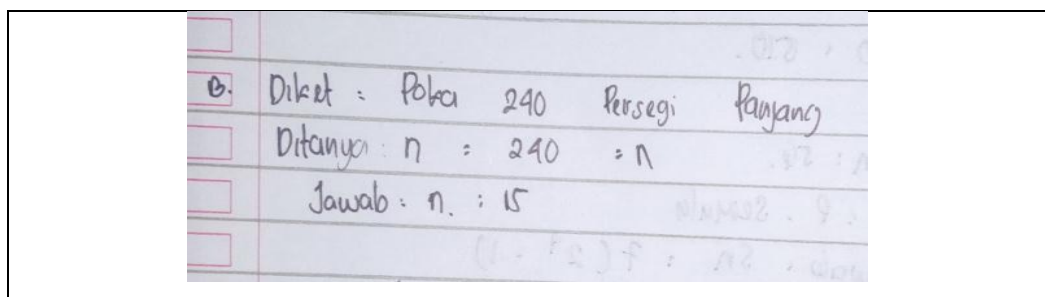 B. Diket : Pola 240 Persegi Panjang
Ditanya : n = 240 = n
Jawab : n. : 15